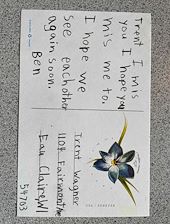 Trent I mis
you I hope you
mis me to.
I hope we
see eachother
again soon.
Ben
USA / FOREVER
Trent Wagner
1104 Fairmont Ave
Eau Claire, WI
54703